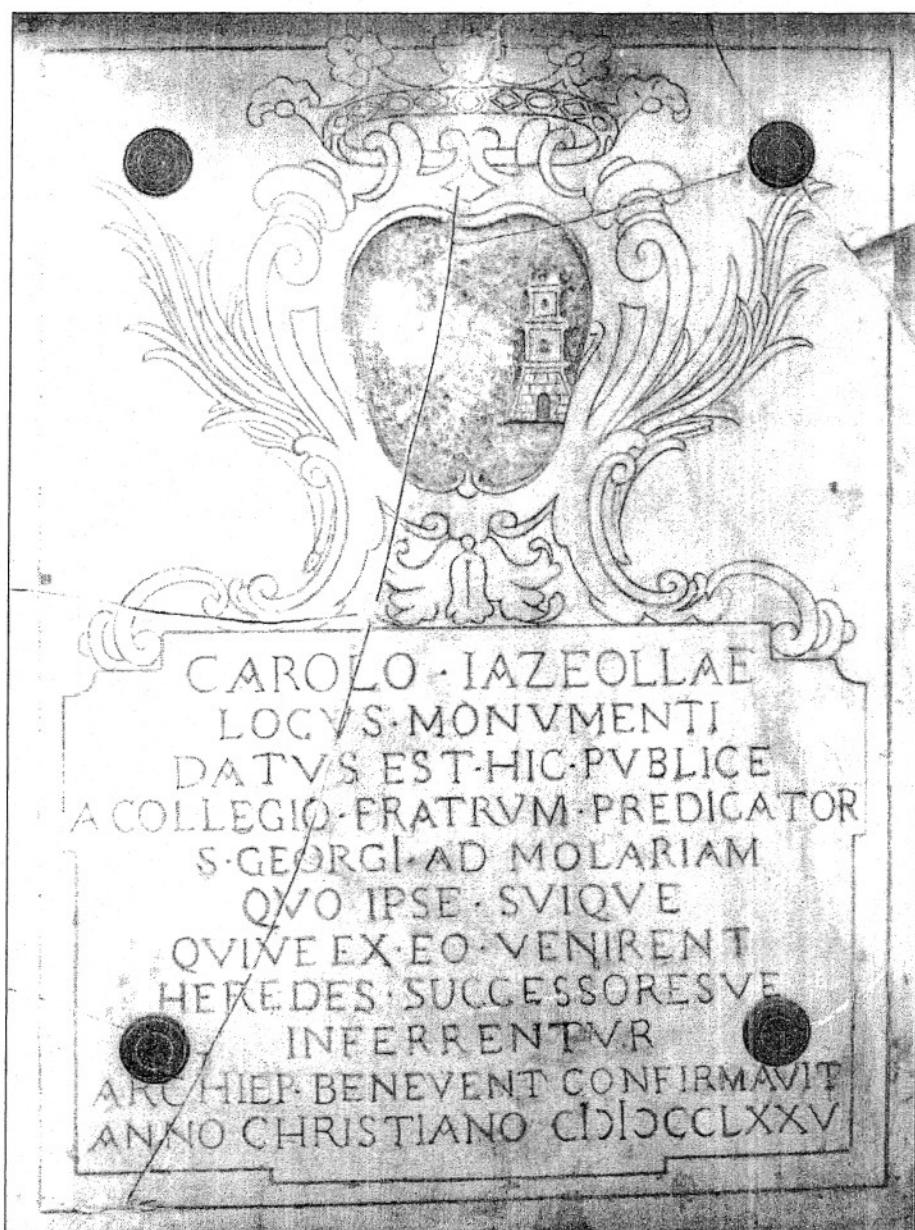 CAROLO · IAZEOLLAE
LOCVS · MONVMENTI
DATVS EST · HIC · PVBLICE
A COLLEGIO · FRATRVM · PREDICATOR
S · GEORGI · AD MOLARIAM
QVO IPSE · SVIQVE
QVIVE EX · EO · VENIRENT
HEREDES · SUCCESSORESVE
INFERRENTVR
ARCHIEP · BENEVENT CONFIRMAVIT
ANNO CHRISTIANO CIƆIƆCCLXXV